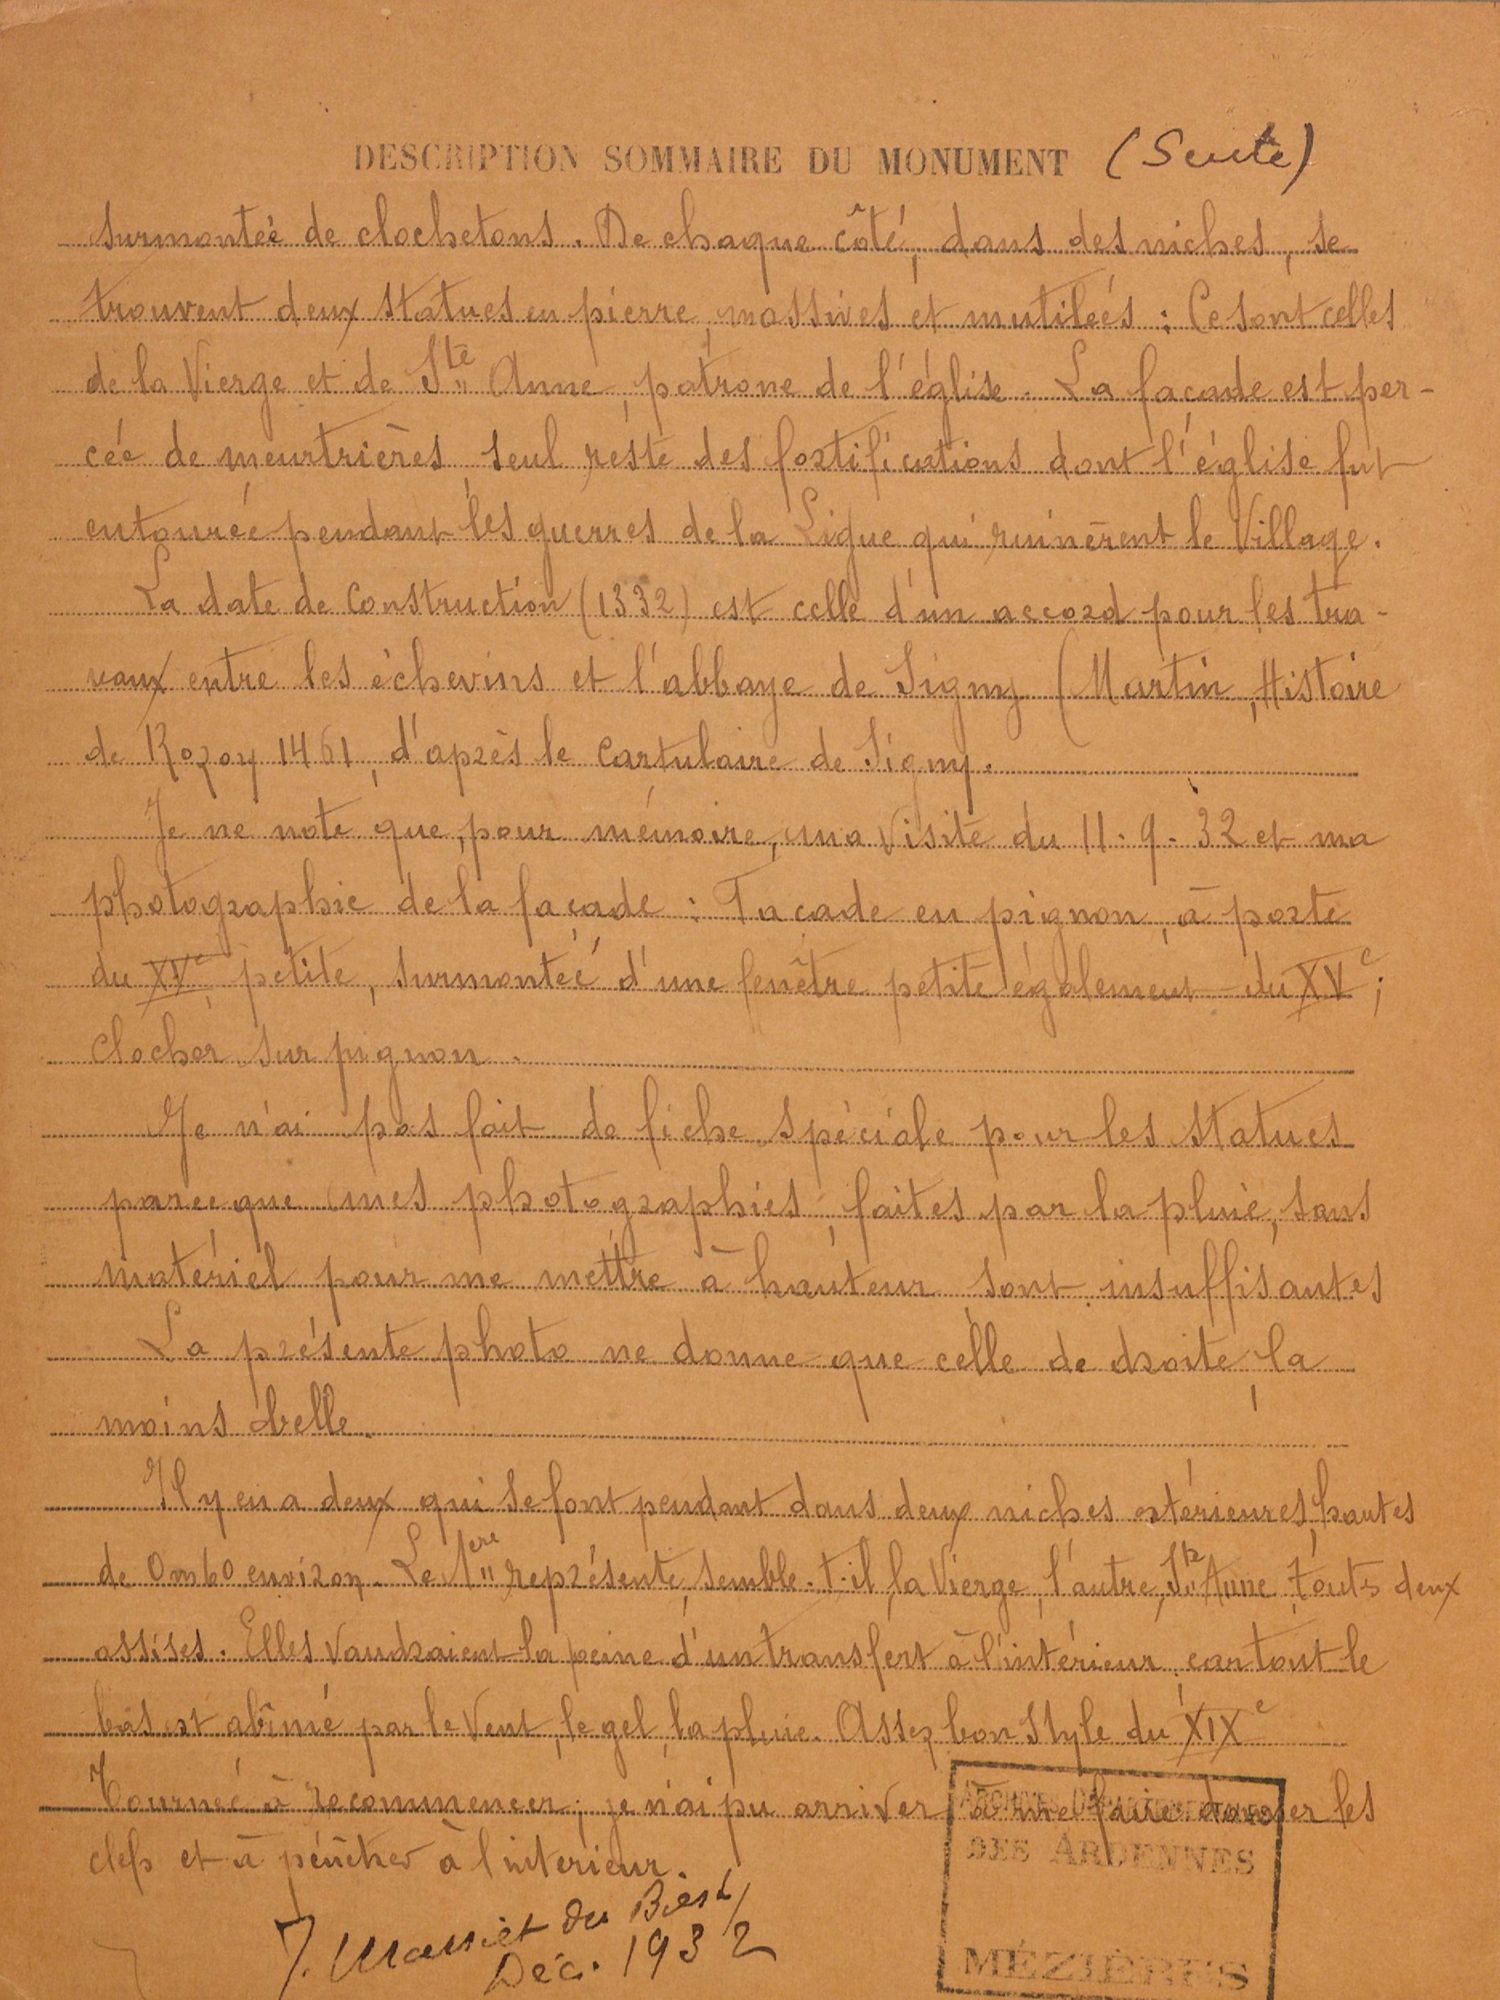 DESCRIPTION SOMMAIRE DU MONUMENT (Suite)
surmontée de clochetons. De chaque côté, dans des niches, se
trouvent deux statues en pierre, massives et mutilées : Ce sont celles
de la Vierge et de Ste Anne, patrone de l'église. La façade est per-
cée de meurtrières, seul reste des fortifications dont l'église fut
entourée pendant les guerres de la Ligue qui ruinèrent le Village.
La date de Construction (1332) est celle d'un accord pour les tra-
vaux entre les échevins et l'abbaye de Signy (Martin, Histoire
de Rozoy 1461, d'après le Cartulaire de Signy.
Je ne note que, pour mémoire, ma visite du 11-9-32 et ma
photographie de la façade : Façade en pignon, à porte
du XVe, petite, surmontée d'une fenêtre petite également du XVe;
Clocher sur pignon.
Je n'ai pas fait de fiche spéciale pour les statues
parceque mes photographies, faites par la pluie, sans
matériel pour me mettre à hauteur, sont insuffisantes
La présente photo ne donne que celle de droite, la
moins belle.
Il y en a deux qui se font pendant dans deux niches extérieures, hautes
de 0m60 environ. Le 1ere représente, semble-t-il, la Vierge, l'autre, Ste Anne, touts deux
assises. Elles vaudraient la peine d'un transfert à l'intérieur car tout le
bas est abîmé par le Vent, le gel, la pluie. Assez bon style du XIXe
Tournée à recommencer; je n'ai pu arriver à me faire donner les
clefs et à pénétrer à l'intérieur.
J. Massiet du Biest
Déc. 1932
ARCHIVES DÉPARTEMENTALES
DES ARDENNES
MÉZIÈRES